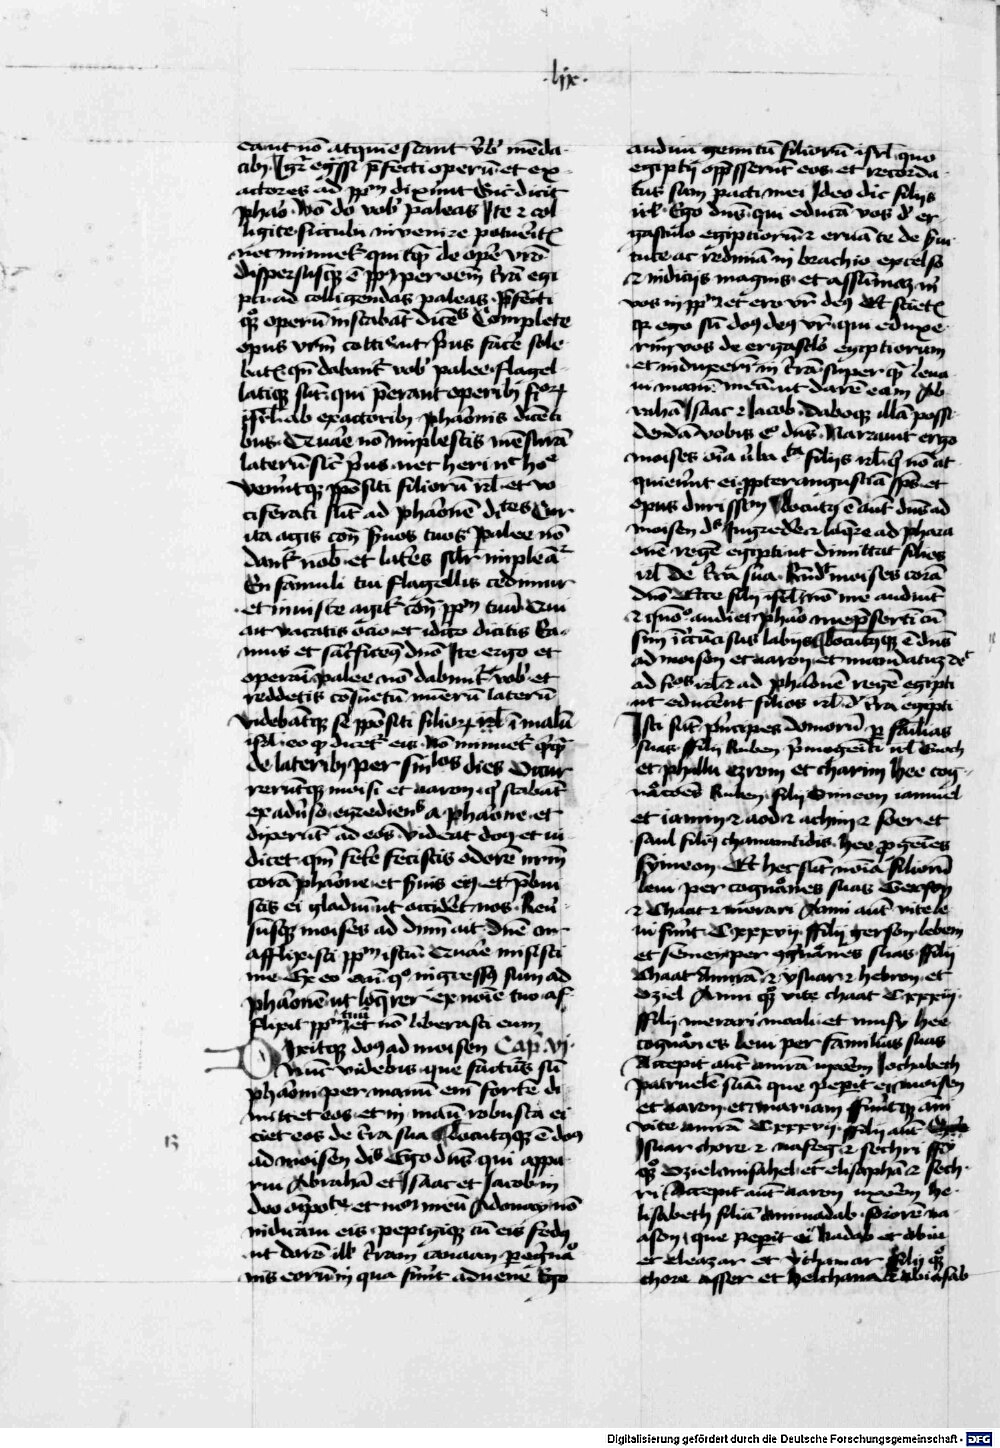 ·lix·
eant no͞ atquiescant v͞bʼ me͞da-
cibʒ Igʳ eg͞ssi p͞fecti operu͞ et ex-
actores ad pp͞m dixerunt Sic dicit
phao͞ No͞ do vobʼ paleas Ite ⁊ col-
ligite sicubi invenire potue͞it
nec minuet͞ qui͞cq͞ de ope͞ v͞ro
dispersusqʒ e͞ pp͞ls per oem t͞ra͞ egi-
pti ad colligendas paleas p͞fecti
qʒ operu͞ instabant dice͞s Complete
opus v͞rm cottidie ut p͞us face͞ sole-
batis qn͞ dabant͞ vobʼ palee flagel-
latiqʒ su͞t qui p͞erant operibʒ fi͞oꝝ
isr͞l ab exactoribʒ pha͞onis dice͞ti-
bus Qua͞re no͞ impletis me͞sura͞
lateru͞ sic͞ p͞us nec heri nec ho͞e
venerunt͞qʒ p͞positi filioru͞ isr͞l et vo-
ciferati su͞t ad pha͞one͞ dice͞tes Cur
ita agis co͞n s͞vos tuos palee no͞
dant͞ nob͞ et late͞res sil͞r implea͞t͞
En famuli tui flagellis cedimur
et iniuste agit͞ co͞n pp͞m tuu͞ Qui
ait vacatis ocio et idcirco dicitis Ea-
mus et sac͞ficemʒ d͞no Ite ergo et
operami͞ palee no͞ dabunt͞ vob͞ et
reddetis co͞suetu͞ nume͞ru͞ lateru͞
videba͞tqʒ se p͞positi filioꝝ isr͞l i͞ malu͞
eo qʼ dicet͞ eis No͞ minuet͞ q͞cq͞
de lateribʒ per sin͞los dies Occur-
rerunt͞qʒ moisi et aaron qʼ stabant
ex adu͞so egredien͞s a pha͞one et
dixerunt ad eos videat d͞os et iu-
dicet qm͞ fete͞re fecistis odore͞ nr͞m
cora͞ pha͞one et s͞uis eiʒ et p͞bui-
stis ei gladiu͞ ut occide͞t nos Reu͞-
susqʒ moises ad d͞nm ait d͞ne cur
afflixisti pp͞m istu͞ Qua͞re misisti
me Ex eo eni͞ qʼ ingressʒ sum ad
pha͞one͞ ut loq͞rer ex no͞ie tuo af-
flixit pp͞m tuu͞ et no͞ liberasti eum
Dixitqʒ d͞os ad moisen Cap͞ vi·
Nunc videbis que factur͞s su͞
pha͞oni per manu͞ eni͞ forte͞ di-
mittet eos et in manu͞ robusta ei-
ciet eos de t͞ra sua Locutusqʒ e͞ d͞os
ad moisen di͞s Ego d͞ns qui appa-
rui Abraha͞ et Isaac et Jacob in
deo o͞ipote͞te et nomen͞ meu͞ Adonay no͞
indicaui eis pepigiqʒ cu͞ eis fedus
ut dare͞ ill͞ t͞ram canaan pegrina͞-
nis eorum in qua fueru͞t aduene Ego
audiui gemitu͞ filioru͞ isr͞l quo
egiptij opp͞sserunt eos et recorda-
tus sum pacti mei Ideo dic filijs
isr͞l Ego d͞ns qui educa͞ vos de er-
gastulo egiptioru͞ ⁊ erua͞ te de s͞ui-
tute ac redima͞ in brachio excelso
⁊ indicijs magnis et assuma͞ in
vos in pp͞m et ero v͞r deʒ Et scietis
qʼ ego su͞ do͞s deʒ v͞r qui eduxe-
rim vos de ergastulo egiptiorum
et induxeri͞ in t͞ra͞ super qua͞ leua-
ui manu͞ mea͞ ut dare͞m eam Ab-
raha͞ Isaac ⁊ Jacob daboqʒ illa͞ possi-
denda͞ vobis eg͞ d͞ns Narrauit ergo
moises o͞ia v͞ba filijs isr͞l qʼ no͞ at-
quieu͞nt ei p͞pter angustia͞ sp͞s et
opus durissimu͞ Locutʒ e͞ aut͞ d͞ns ad
moisen di͞s Ingredere ⁊ loq͞re ad phara-
one͞ rege͞ egipti ut dimittat filios
isr͞l de t͞ra͞ sua Rn͞dit moises cora͞
d͞no Ecce filij isr͞l no͞ me audiunt͞
⁊ quo͞ audiet phao͞ mep͞serti͞ cu͞
sim i͞cu͞ncisus labijs Locutusqʒ e͞ d͞ns
ad moisen et aaron et mandatu͞ dedit
ad fi͞os isr͞l ⁊ ad pha͞one͞ rege͞ egipti
ut educe͞nt filios isr͞l de t͞ra egipti
Isti su͞t p͞ncipes domoru͞ p familias
suas ffilij Ruben p͞mogeniti isr͞l Enoch
et phallu ezrom et charmi hee cog-
nac͞oes Ruben filij Symeon iamuel
et iamin ⁊ aod ⁊ achim ⁊ soer et
saul filiʒ chananitidis hee p͞genies
Symeon Et hec su͞t no͞ia filioru͞
leui per cogna͞nes suas Gerson
⁊ Chaat ⁊ merari Anni aut͞ vite le-
ui fueru͞t Cxxxvij ffilij gerson lebem
et Semei per cogna͞nes suas ffilij
Chaat Amra͞ ⁊ ysuar ⁊ hebron et
oziel Anni qʒ vite chaat Cxxxiij
ffilij merari mooli et musy hee
cogna͞es leui per familias suas
Accepit aut͞ amra͞ uxore͞m Jochabeth
patruele͞ sua͞ que pepit ei moisen
et aaron et mariam ffueru͞tqʒ ani
vite amra͞ Cxxxvij ffilij aut͞
Isuar chore ⁊ nafeg ⁊ sechri ffilij
qʒ Oziel misahel et elisapha͞ ⁊ sech-
ri Accepit aut͞ aaron uxore͞m he-
lisabeth filia͞ aminadab sorore͞ na-
ason que pepit ei Nadab et Abiu
et eleazar et ythamar ffilij qʒ
chore asser et helchana ⁊ abiasab
Digitalisierung gefördert durch die Deutsche Forschungsgemeinschaft - DFG